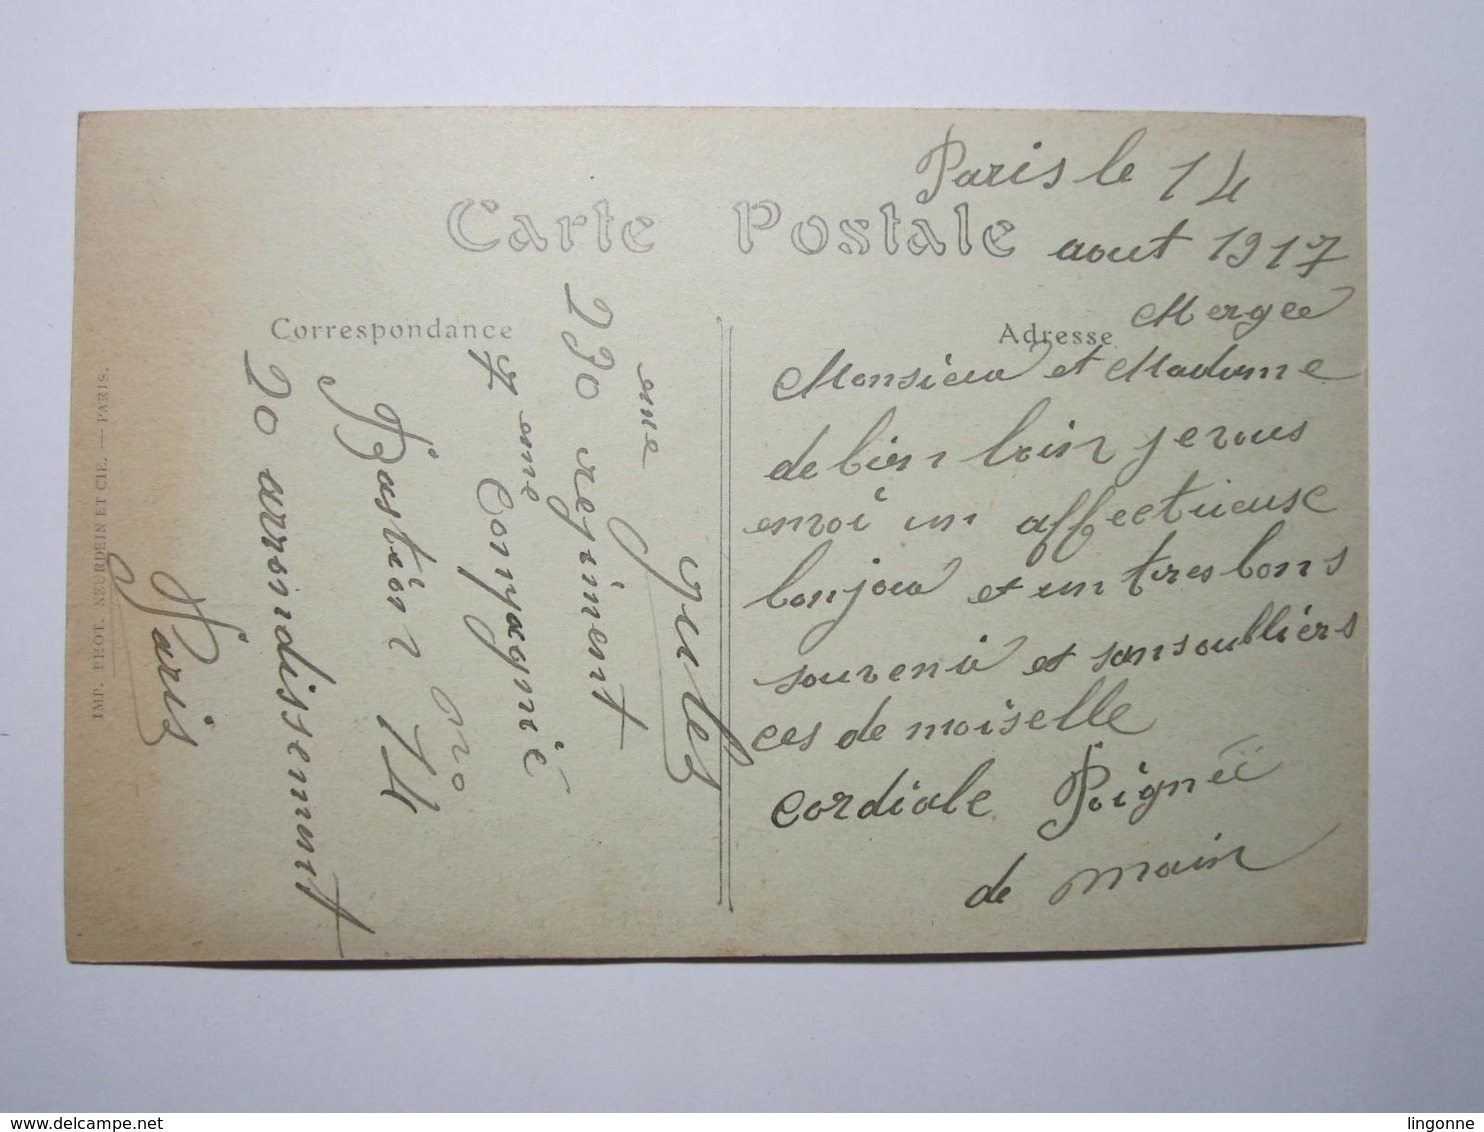 Carte Postale
Correspondance
Adresse
Paris le 14
aout 1917
Mergee
Monsieur et Madame
de bien loin je vous
envoi un affectueuse
bonjour et un tres bons
souvenir et sans oublier s
ces de moiselle
cordiale Poignée
de main
Jules
230 eme regiment
4 eme Compagnie
Bastion no 74
20 arrondissement
Paris
IMP. PHOT. NEURDEIN ET CIE. — PARIS.
www.delcampe.net
lingonne